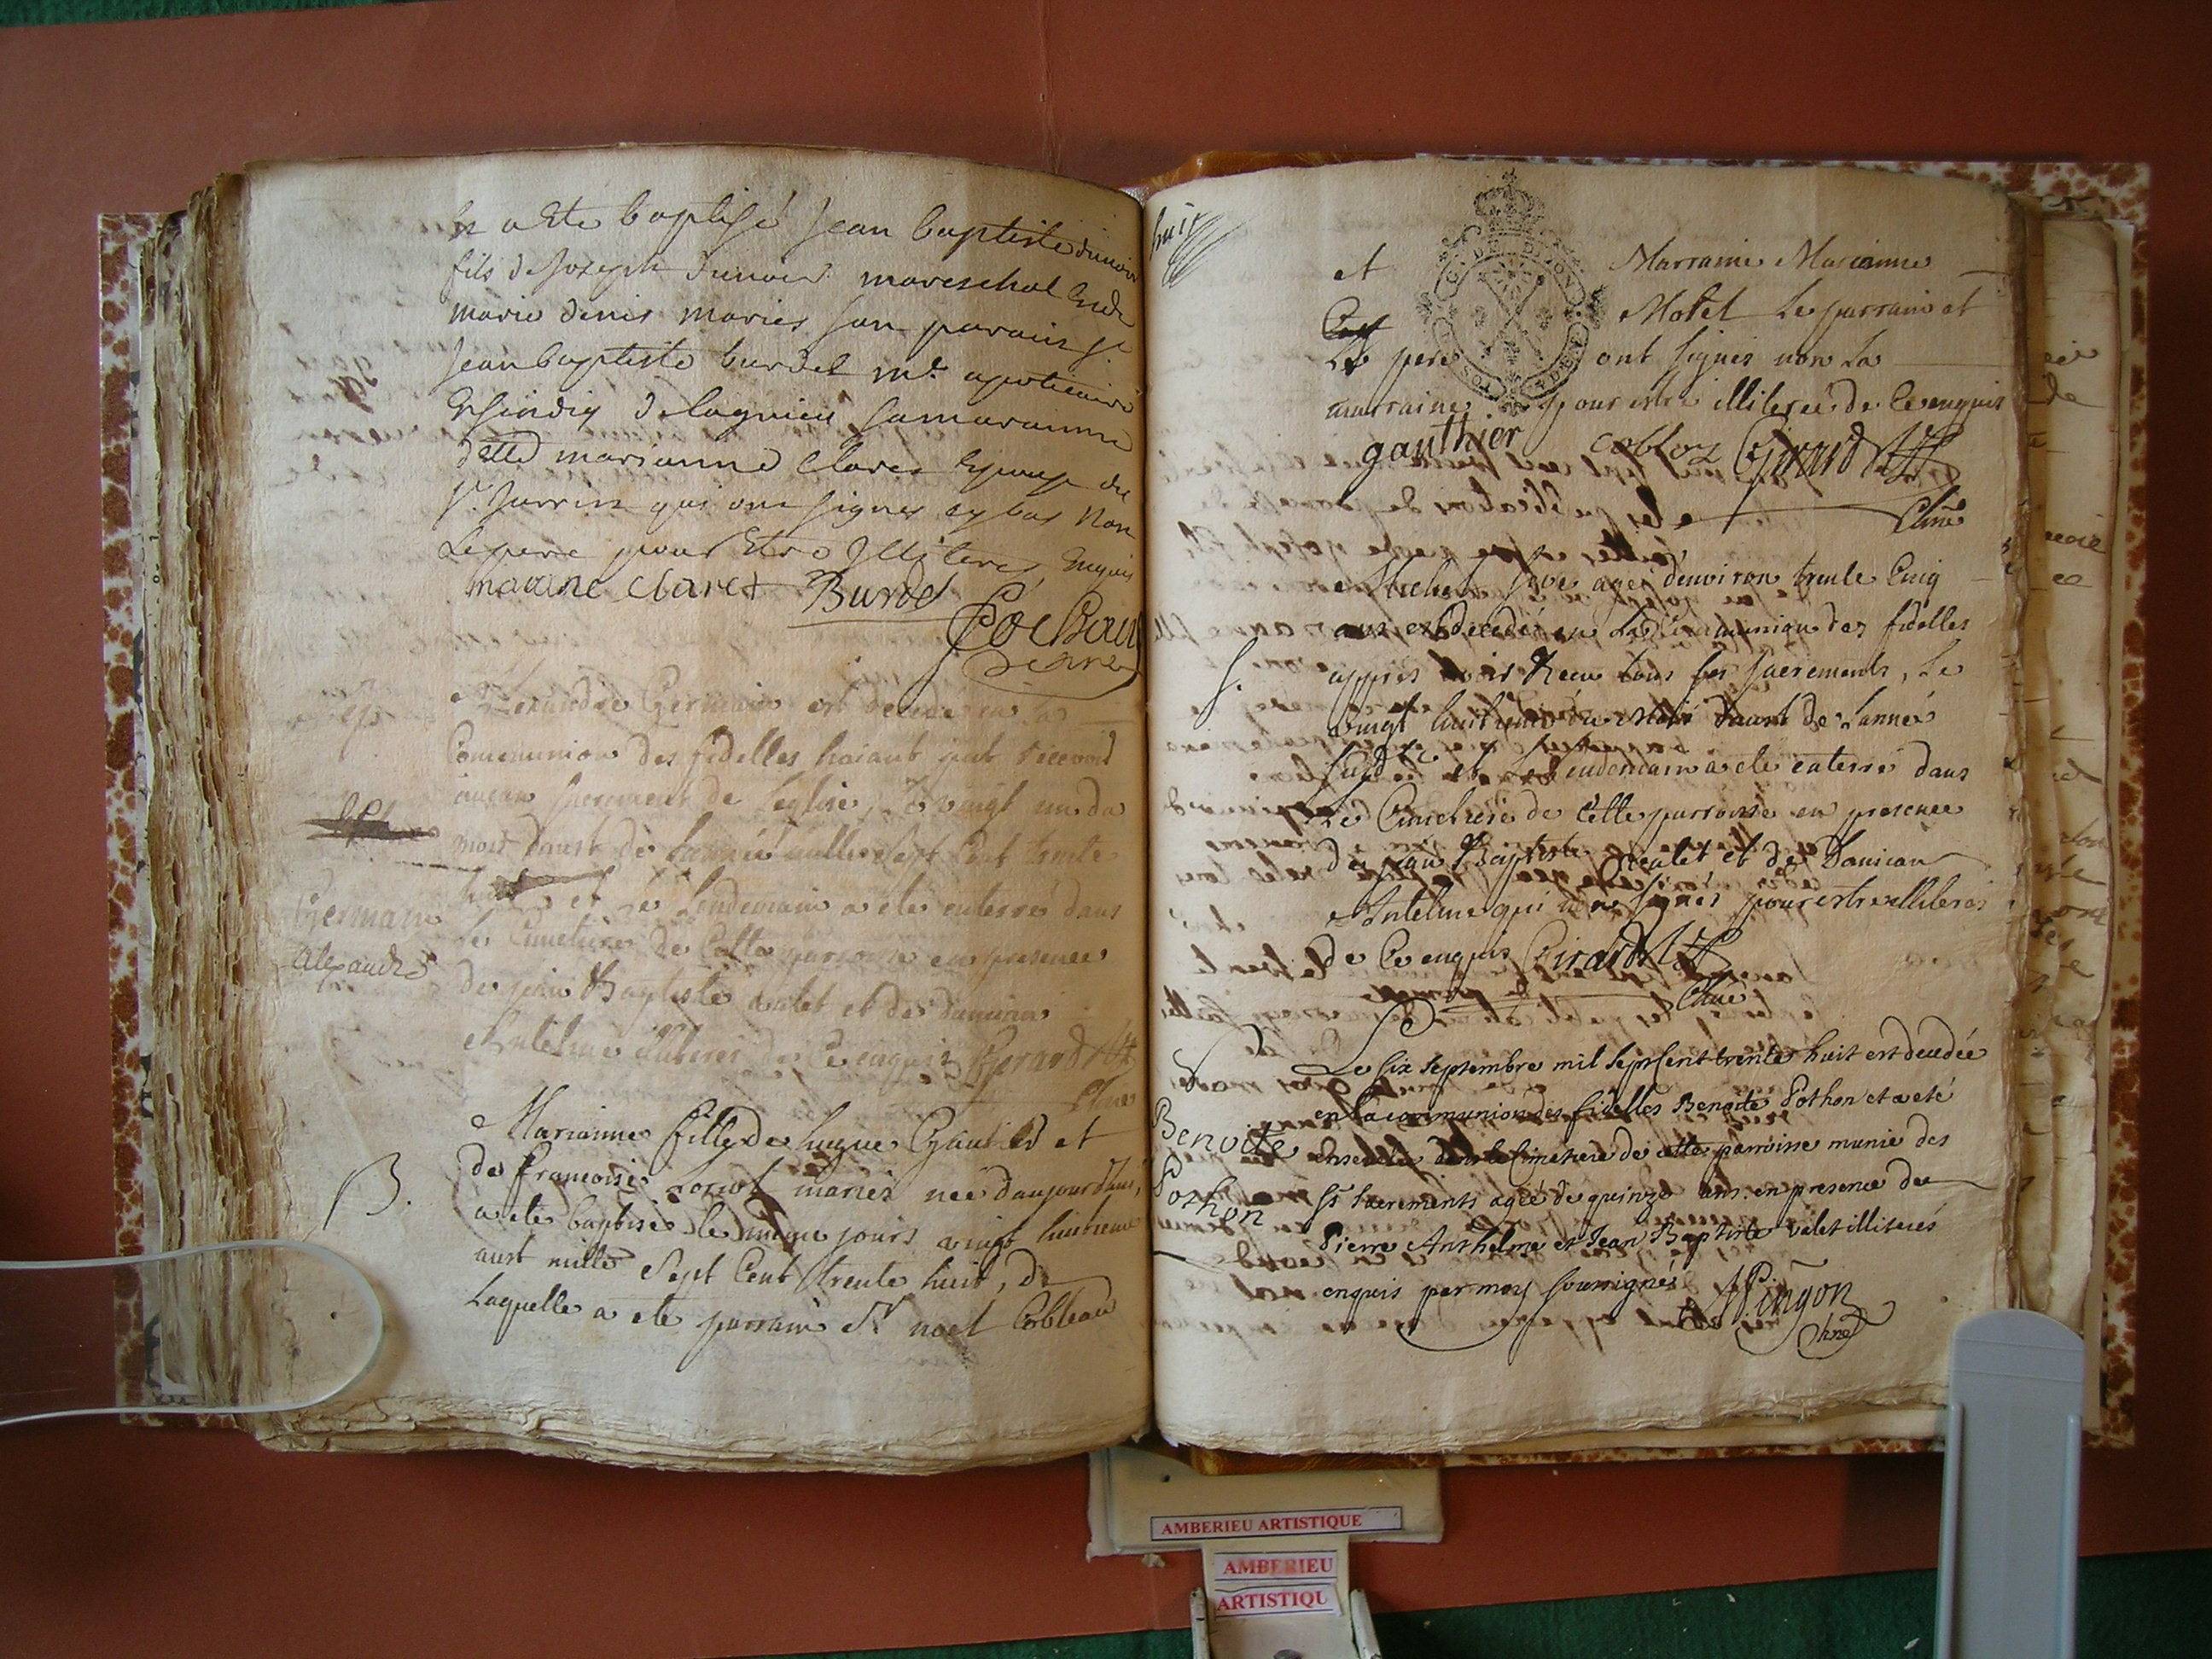 a Ete baptisé Jean baptiste dunoir
fils de Joseph dunoir mareschal Et de
marie denis mariés son parain Sr
Jean baptiste burdel md apoticaire
Et sindiq de lagnieu sa maraine
dlle marianne Claret Epouse du
Sr Surrin qui ont signes cy bas Non
Le pere pour Etre Illiteres Enquis
marine Claret Burdel
Cochau
Alexandre Germain est decede en la
Communion des fidelles haiant put recevoir
aucun sacrement de l'eglise, le vingt un du
mois d'aust de l'année mille sept Cent trente
huit et le lendemain a ete enterré dans
Germain
le Cimetiere de Cette parroisse en presence
Alexandre
de jean Baptiste valet et de
Antelme illiteres de Ce enquis Girard
Marianne fille de hugue Gautier et
de francoise mariés née d'aujourdhui,
B.
a ete baptisée le meme jours vingt huitieme
aust mille Sept Cent trente huit, de
Laquelle a ete parrain Sr noel Cobleau
huit
et Marraine Marianne
Motel Le parrain et
Le pere ont signés non La
marraine pour estre illiterée de Ce enquis
gauthier Girard
Michel agé d'environ trente Cinq
ans est decedé en La Communion des fidelles
S.
apprès avoir Receu tous ses sacrements, Le
vingt huitieme du Mois d'aust de L'année
et Le lendemain a ete enterré dans
Le Cimetiere de Cette parroisse en presence
de jean Baptiste valet et de
Antelme qui n'ont signés pour estre illiterés
de Ce enquis Girard
Le six septembre mil sept Cent trente huit est decedée
en la communion des fidelles Benoite Pothon et a eté
Benoite
ensevelie dans le Cimetiere de cette parroisse munie des
Pothon
Sts sacrements agée de quinze ans en presence de
Pierre Anthelme et Jean Baptiste valet illiterés
enquis par moy soussigné
Pingon
AMBERIEU ARTISTIQUE
AMBERIEU
ARTISTIQU